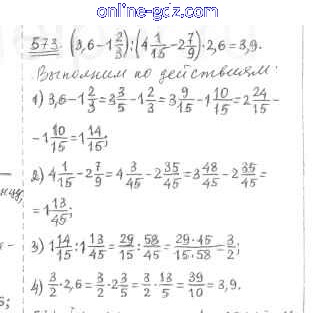 online-gdz.com
573. (3,6-1 2/3):(4 1/15-2 7/9)·2,6=3,9.
Выполним по действиям:
1) 3,6-1 2/3=3 3/5-1 2/3=3 9/15-1 10/15=2 24/15-
-1 10/15=1 14/15;
2) 4 1/15-2 7/9=4 3/45-2 35/45=3 48/45-2 35/45=
=1 13/45;
3) 1 14/15:1 13/45=29/15:58/45=29·45/15·58=3/2;
4) 3/2·2,6=3/2·2 3/5=3/2·13/5=39/10=3,9.